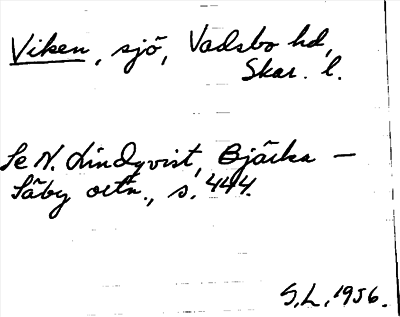 Viken, sjö, Vadsbo hd,
Skar. l.
Se N. Lindqvist, Bjärka –
Säby ortn., s. 444.
S.L. 1956.